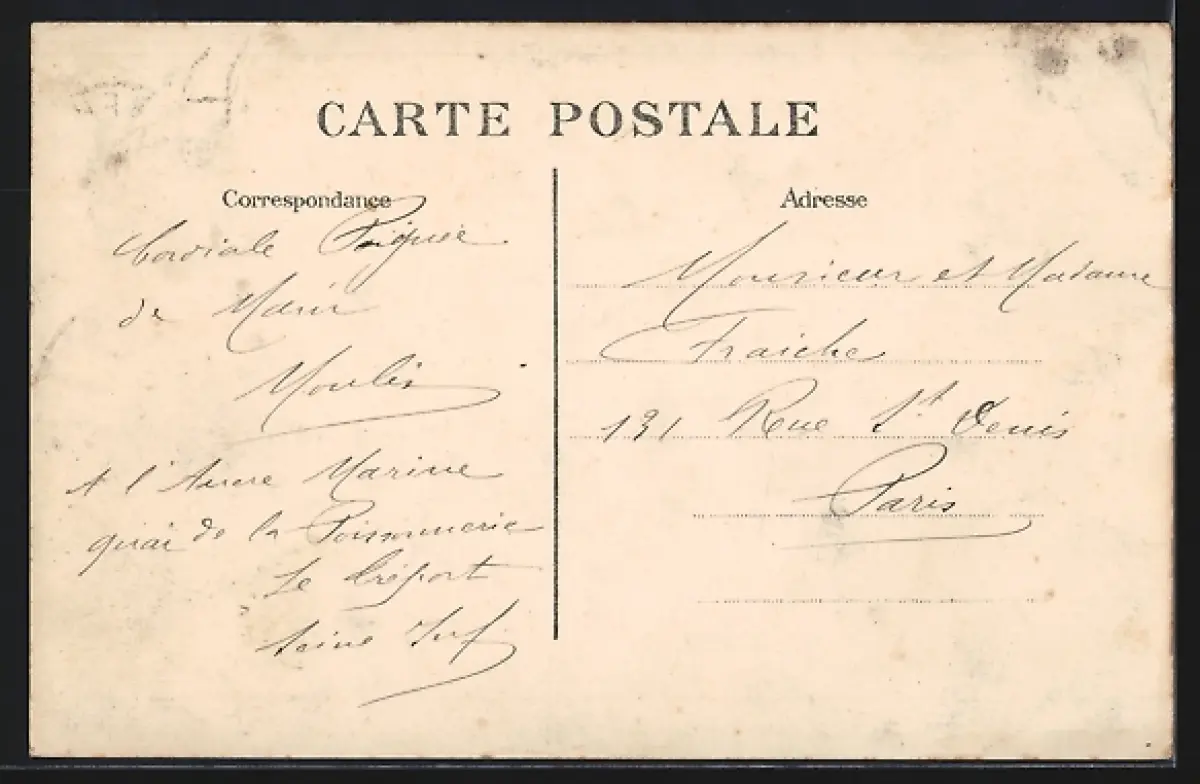 CARTE POSTALE
Correspondance
Cordiale Poignée
de Main
Moulis
A l'Ancre Marine
quai de la Poissonnerie
Le Tréport
Seine Inf
Adresse
Monsieur et Madame
Fraiche
131 Rue St Denis
Paris